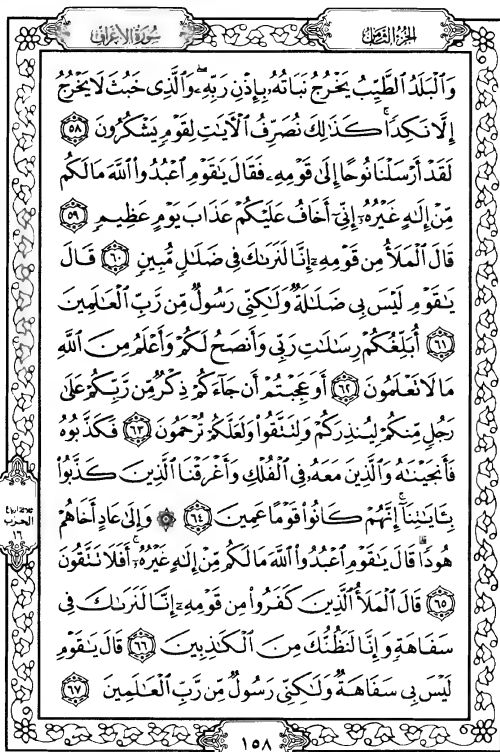 الجزء الثامن
سورة الأعراف
وَٱلْبَلَدُ ٱلطَّيِّبُ يَخْرُجُ نَبَاتُهُۥ بِإِذْنِ رَبِّهِۦۖ وَٱلَّذِى خَبُثَ لَا يَخْرُجُ
إِلَّا نَكِدًاۚ كَذَٰلِكَ نُصَرِّفُ ٱلْـَٔايَٰتِ لِقَوْمٍ يَشْكُرُونَ ٥٨
لَقَدْ أَرْسَلْنَا نُوحًا إِلَىٰ قَوْمِهِۦ فَقَالَ يَٰقَوْمِ ٱعْبُدُوا۟ ٱللَّهَ مَا لَكُم
مِّنْ إِلَٰهٍ غَيْرُهُۥٓ إِنِّىٓ أَخَافُ عَلَيْكُمْ عَذَابَ يَوْمٍ عَظِيمٍ ٥٩
قَالَ ٱلْمَلَأُ مِن قَوْمِهِۦٓ إِنَّا لَنَرَىٰكَ فِى ضَلَٰلٍ مُّبِينٍ ٦٠ قَالَ
يَٰقَوْمِ لَيْسَ بِى ضَلَٰلَةٌ وَلَٰكِنِّى رَسُولٌ مِّن رَّبِّ ٱلْعَٰلَمِينَ
٦١ أُبَلِّغُكُمْ رِسَٰلَٰتِ رَبِّى وَأَنصَحُ لَكُمْ وَأَعْلَمُ مِنَ ٱللَّهِ
مَا لَا تَعْلَمُونَ ٦٢ أَوَعَجِبْتُمْ أَن جَآءَكُمْ ذِكْرٌ مِّن رَّبِّكُمْ عَلَىٰ
رَجُلٍ مِّنكُمْ لِيُنذِرَكُمْ وَلِتَتَّقُوا۟ وَلَعَلَّكُمْ تُرْحَمُونَ ٦٣ فَكَذَّبُوهُ
فَأَنجَيْنَٰهُ وَٱلَّذِينَ مَعَهُۥ فِى ٱلْفُلْكِ وَأَغْرَقْنَا ٱلَّذِينَ كَذَّبُوا۟
بِـَٔايَٰتِنَآۚ إِنَّهُمْ كَانُوا۟ قَوْمًا عَمِينَ ٦٤ ۞ وَإِلَىٰ عَادٍ أَخَاهُمْ
هُودًاۗ قَالَ يَٰقَوْمِ ٱعْبُدُوا۟ ٱللَّهَ مَا لَكُم مِّنْ إِلَٰهٍ غَيْرُهُۥٓۚ أَفَلَا تَتَّقُونَ
٦٥ قَالَ ٱلْمَلَأُ ٱلَّذِينَ كَفَرُوا۟ مِن قَوْمِهِۦٓ إِنَّا لَنَرَىٰكَ فِى
سَفَاهَةٍ وَإِنَّا لَنَظُنُّكَ مِنَ ٱلْكَٰذِبِينَ ٦٦ قَالَ يَٰقَوْمِ
لَيْسَ بِى سَفَاهَةٌ وَلَٰكِنِّى رَسُولٌ مِّن رَّبِّ ٱلْعَٰلَمِينَ ٦٧
الحزب
١٦
١٥٨